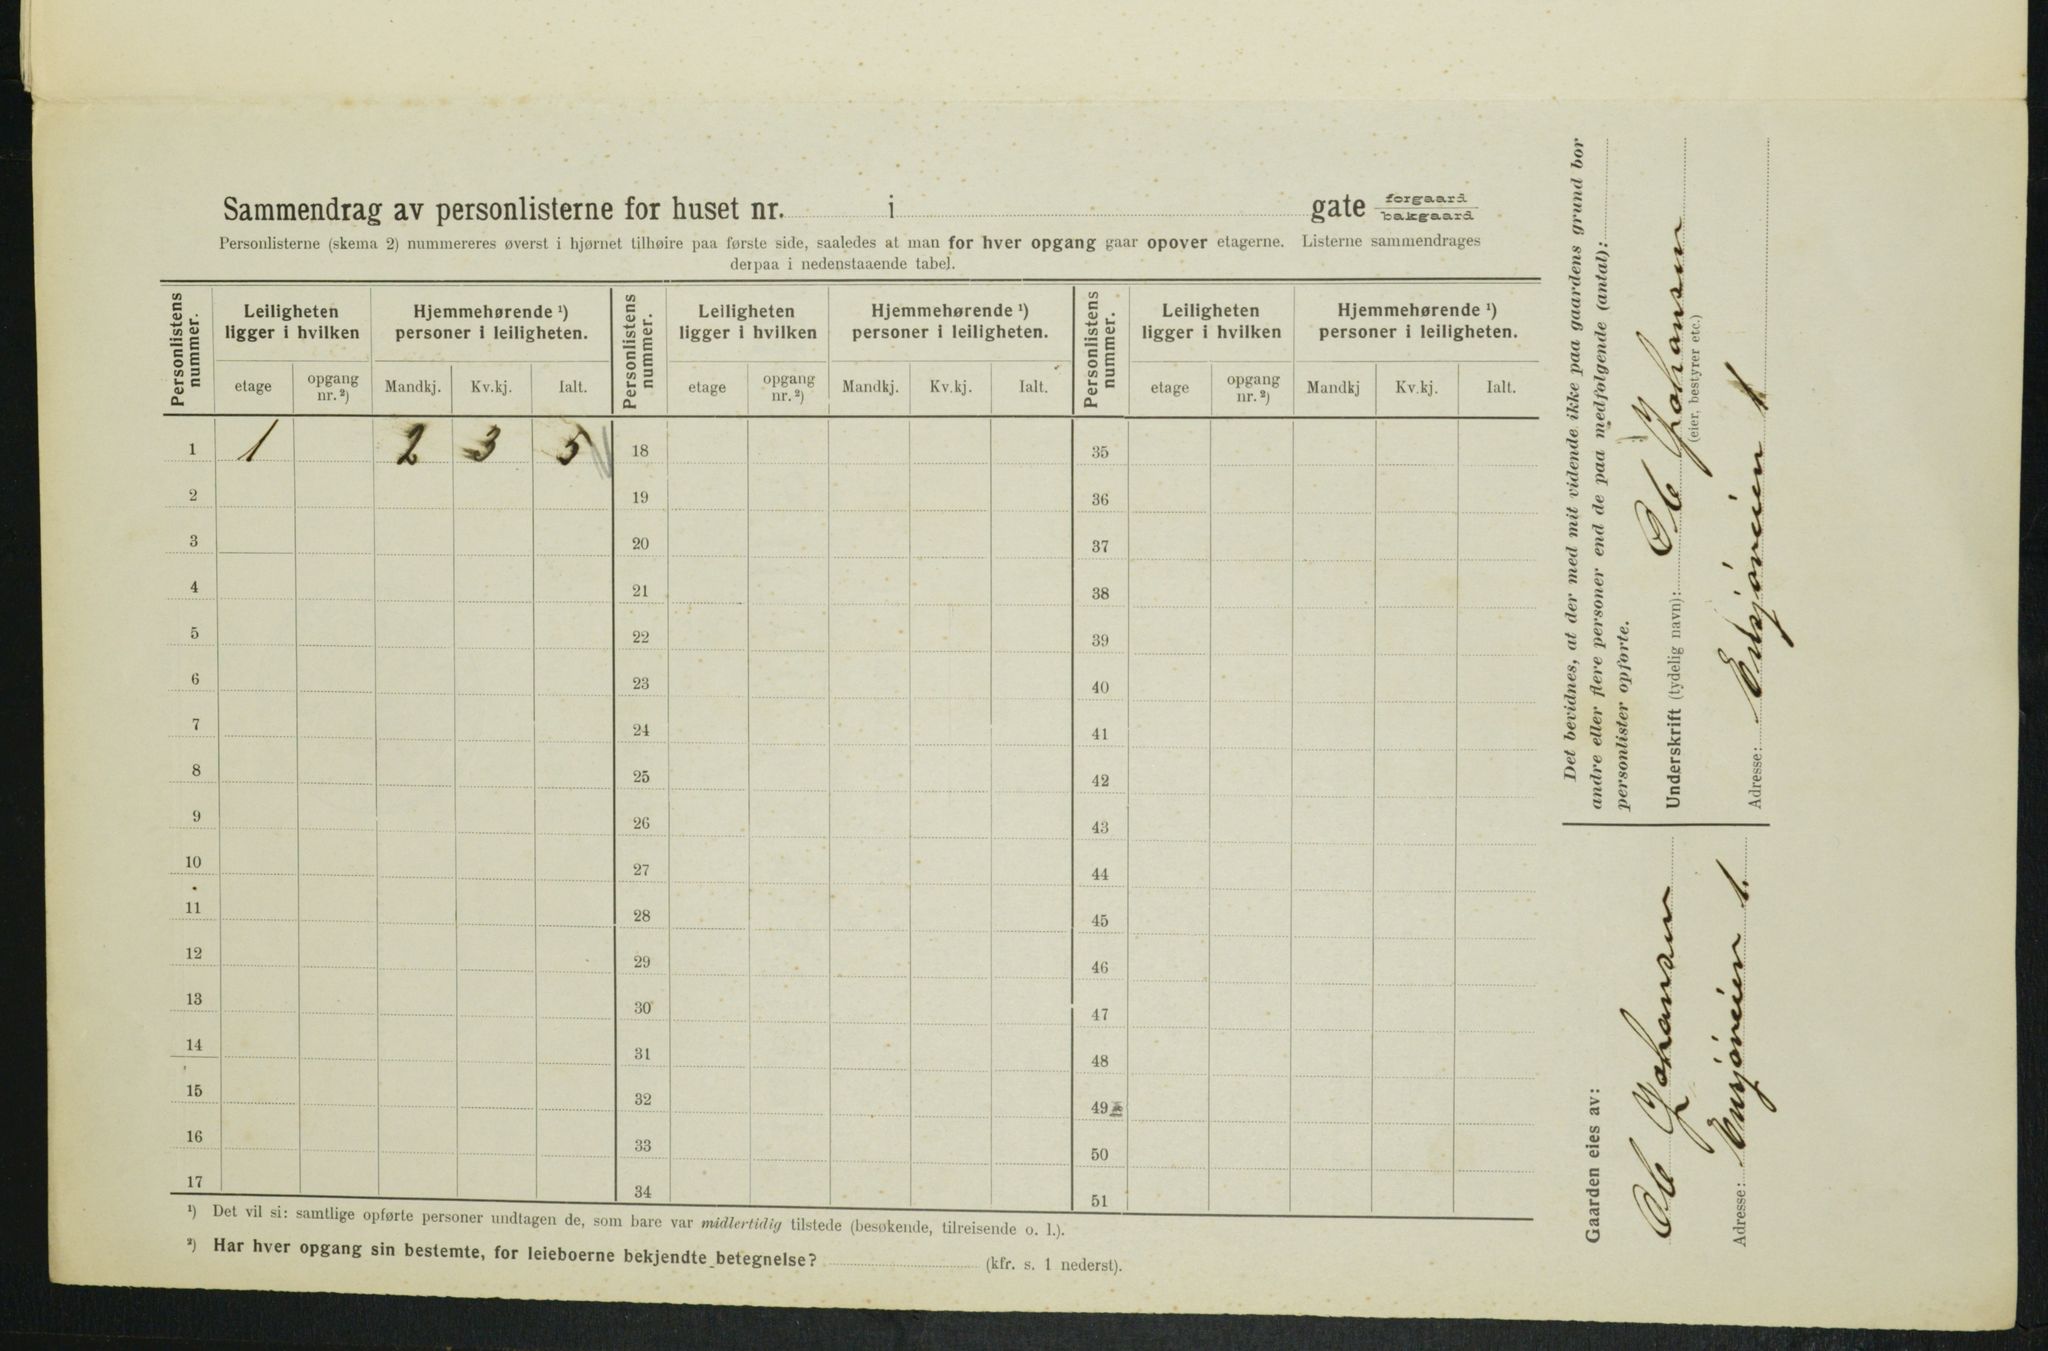 Sammendrag av personlisterne for huset nr. i gate forgaard
bakgaard
Personlisterne (skema 2) nummereres øverst i hjørnet tilhøire paa første side, saaledes at man for hver opgang gaar opover etagerne. Listerne sammendrages
derpaa i nedenstaaende tabel.
Personlistens nummer. Leiligheten ligger i hvilken Hjemmehørende ¹) personer i leiligheten. Personlistens nummer. Leiligheten ligger i hvilken Hjemmehørende ¹) personer i leiligheten. Personlistens nummer. Leiligheten ligger i hvilken Hjemmehørende ¹) personer i leiligheten.
etage opgang nr. ²) Mandkj. Kv.kj. Ialt. etage opgang nr. ²) Mandkj. Kv.kj. Ialt. etage opgang nr. ²) Mandkj Kv.kj. Ialt.
1 1 2 3 5 18 35
2 19 36
3 20 37
4 21 38
5 22 39
6 23 40
7 24 41
8 25 42
9 26 43
10 27 44
11 28 45
12 29 46
13 30 47
14 31 48
15 32 49
16 33 50
17 34 51
¹) Det vil si: samtlige opførte personer undtagen de, som bare var midlertidig tilstede (besøkende, tilreisende o. l.).
²) Har hver opgang sin bestemte, for leieboerne bekjendte betegnelse? (kfr. s. 1 nederst).
Det bevidnes, at der med mit vidende ikke paa gaardens grund bor
andre eller flere personer end de paa medfølgende (antal):
personlister opførte.
Underskrift (tydelig navn): Johansen
(eier, bestyrer etc.)
Adresse: 1
Gaarden eies av:
Johansen
Adresse: 1.